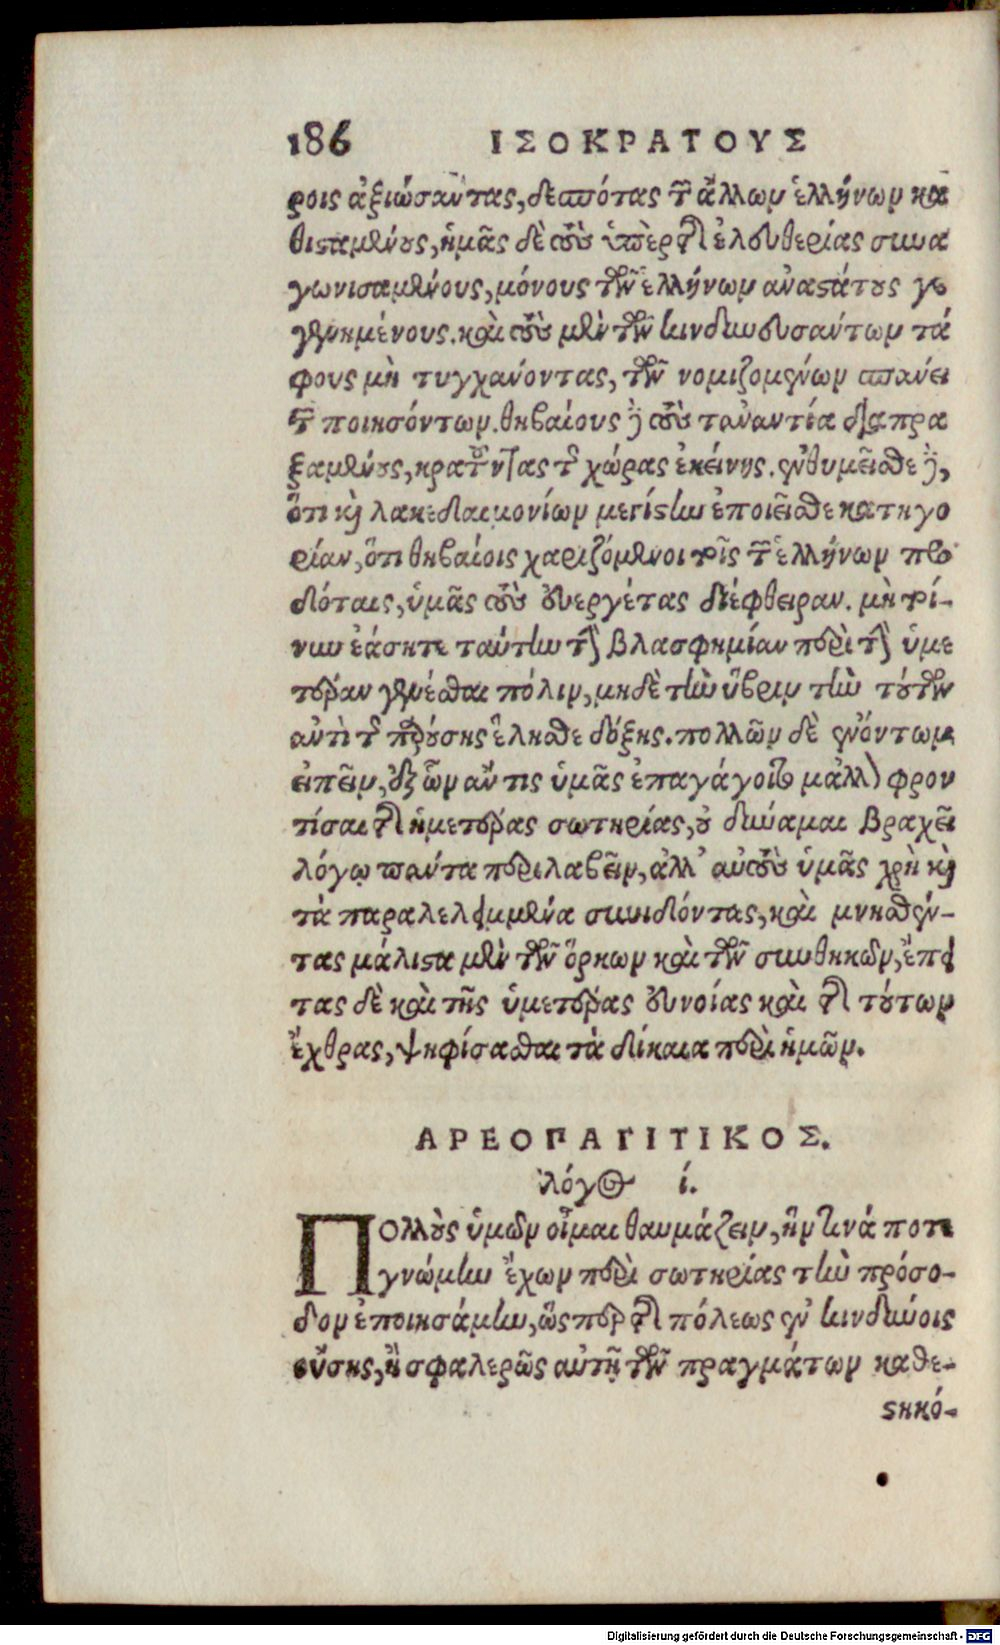 186 ΙΣΟΚΡΑΤΟΥΣ
ροις ἀξιώσαντας, δεσπότας τῶν ἄλλων ἑλλήνων κα
θισαμένους, ἡμᾶς δὲ τοὺς ὑπὲρ τῆς ἐλευθερίας συνα
γωνισαμένους, μόνους τῶν ἑλλήνων ἀναστάτους γε
γενημένους. καὶ τοὺς μὲν τῶν κινδυνευσάντων τά
φους μὴ τυγχάνοντας, τῶν νομιζομένων σπάνει
τῶν ποιησόντων. θηβαίους δὲ τοὺς τἀναντία διαπρα
ξαμένους, κρατοῦντας τῆς χώρας ἐκείνης. ἐνθυμεῖσθε δὲ,
ὅτι καὶ λακεδαιμονίων μεγίστην ἐποιεῖσθε κατηγο
ρίαν, ὅτι θηβαίοις χαριζόμενοι τοῖς τῶν ἑλλήνων προ
δόταις, ὑμᾶς τοὺς εὐεργέτας διέφθειραν. μὴ τοί-
νυν ἐάσητε ταύτην τὴν βλασφημίαν περὶ τὴν ὑμε
τέραν γενέσθαι πόλιν, μηδὲ τὴν ὕβριν τὴν τούτων
ἀντὶ τῆς παρούσης ἕλησθε δόξης. πολλῶν δὲ ἐνόντων
εἰπεῖν, ἐξ ὧν ἄν τις ὑμᾶς ἐπαγάγοιτο μᾶλλον φρον
τίσαι τῆς ἡμετέρας σωτηρίας, οὐ δύναμαι βραχεῖ
λόγῳ πάντα περιλαβεῖν, ἀλλ' αὐτοὺς ὑμᾶς χρὴ καὶ
τὰ παραλελειμμένα συνιδόντας, καὶ μνησθέν-
τας μάλιστα μὲν τῶν ὅρκων καὶ τῶν συνθηκῶν, ἔπει
τας δὲ καὶ τῆς ὑμετέρας εὐνοίας καὶ τῆς τούτων
ἔχθρας, ψηφίσασθαι τὰ δίκαια περὶ ἡμῶν.
ΑΡΕΟΠΑΓΙΤΙΚΟΣ.
λόγος ί.
Πολλοὺς ὑμῶν οἶμαι θαυμάζειν, ἥν τινά ποτε
γνώμην ἔχων περὶ σωτηρίας τὴν πρόσο-
δον ἐποιησάμην, ὥσπερ τῆς πόλεως ἐν κινδύνοις
οὔσης, ἢ σφαλερῶς αὐτῇ τῶν πραγμάτων καθε-
στηκό-
Digitalisierung gefördert durch die Deutsche Forschungsgemeinschaft - DFG